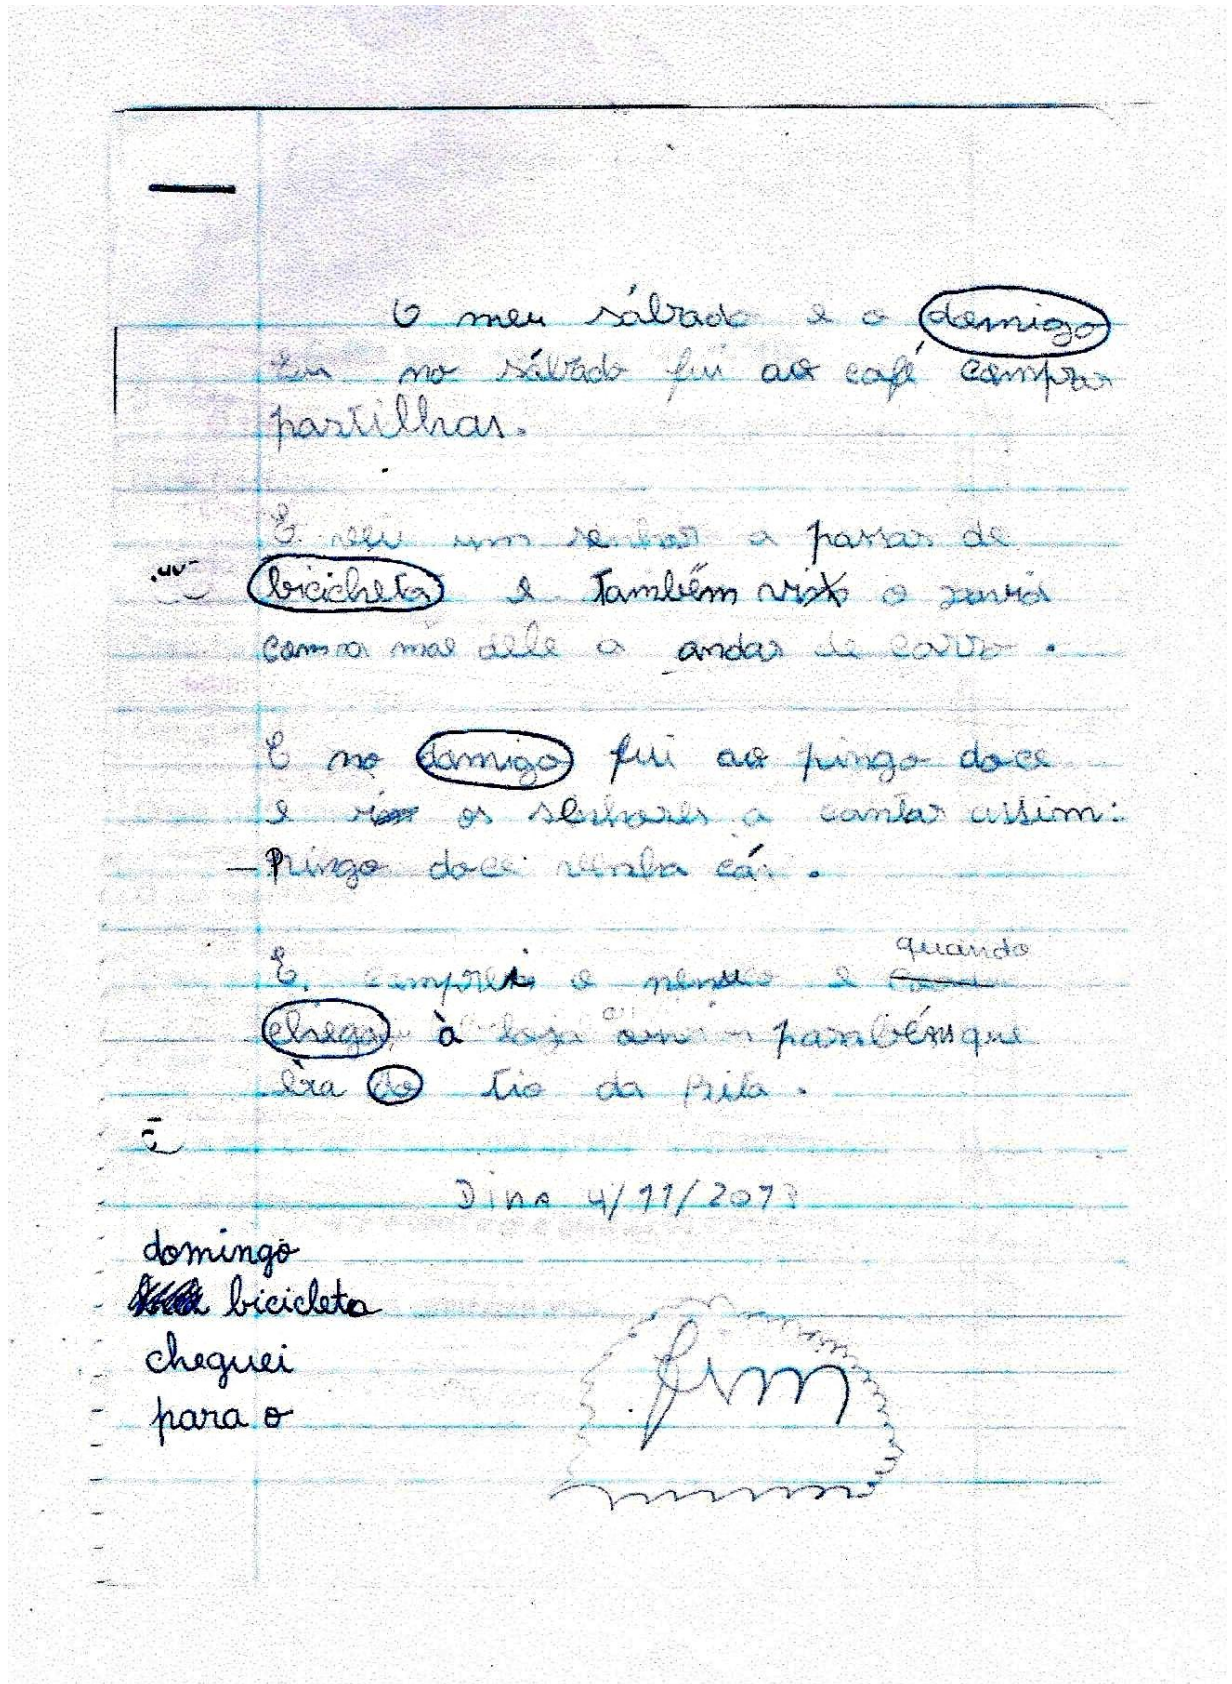 O meu sábado e o domigo
Eu no sábado fui ao café comprar
partilhas.
E um senhor a passar de
bicicheta e também o
com a mãe dele a andar de carro.
E no domigo fui ao pingo doce
e os senhores a cantar assim:
- Pingo doce venha cá.
quando
E comprei o e
chego à loja parabéns que
éra do tio da Rita.
Dina 4/11/2013
domingo
bicicleta
cheguei
para o
fim